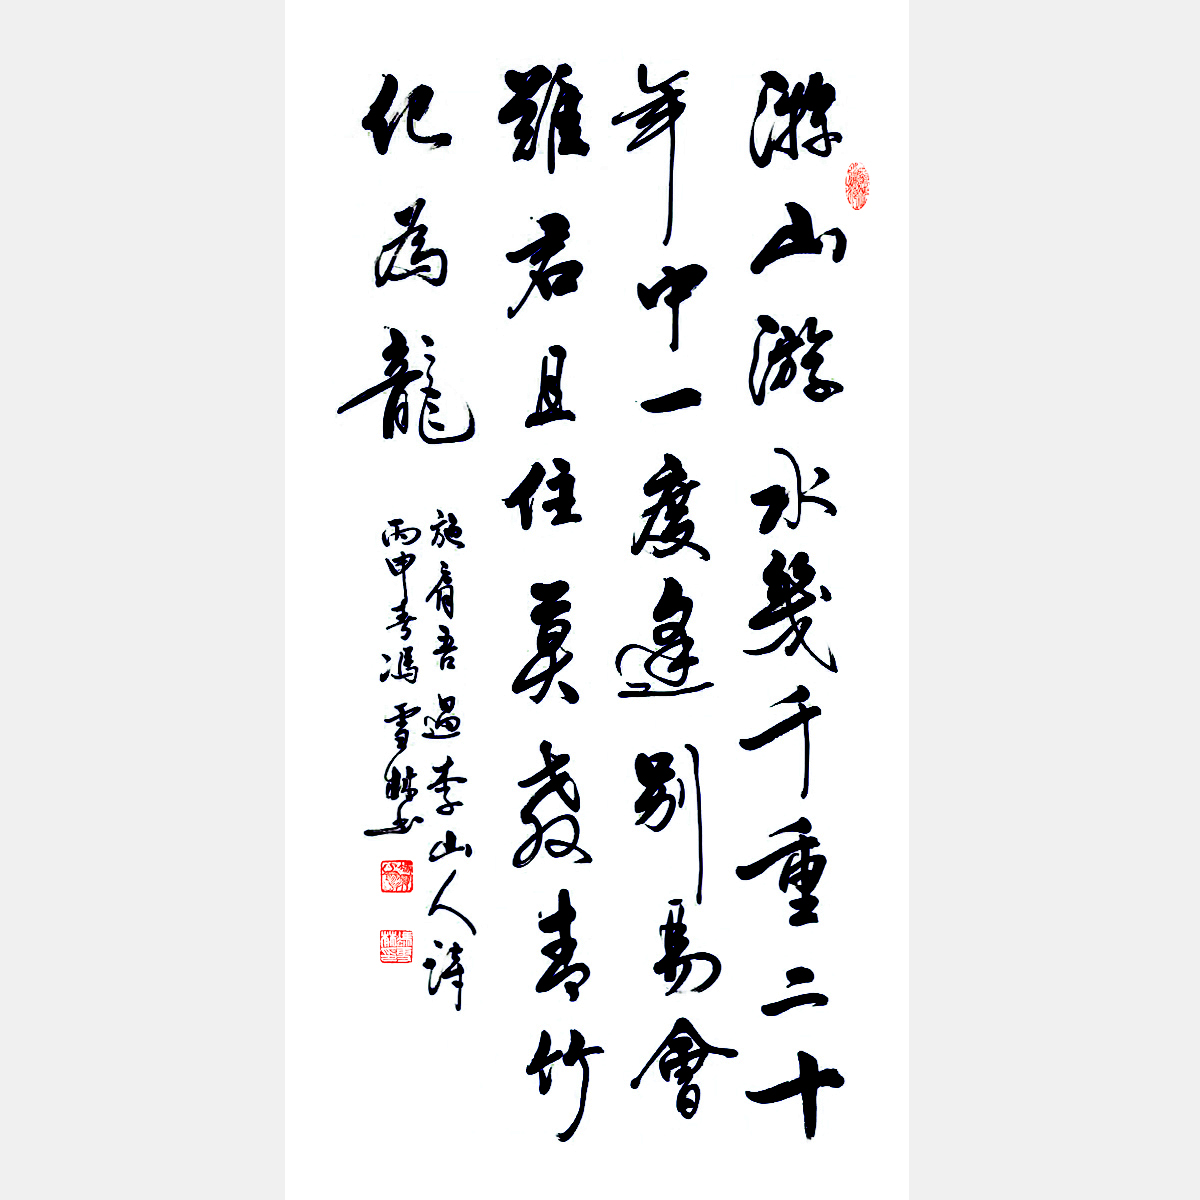 游山游水幾千重二十
年中一度逢別易會
難君且住莫教青竹
化為龍
施肩吾過李山人詩
丙申春馮雪林書